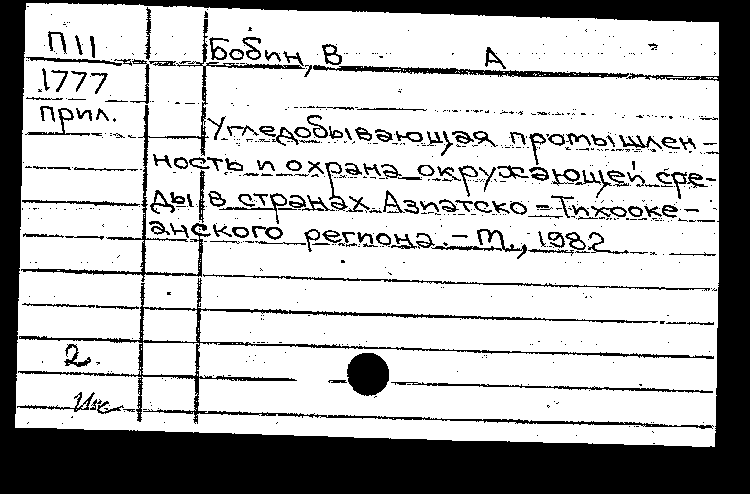 П11
Бобин, В А
1777
прил.
Угледобывающая промышлен-
ность и охрана окружающей сре-
ды в странах Азиатско-Тихооке-
анского региона.-М., 1982
2.